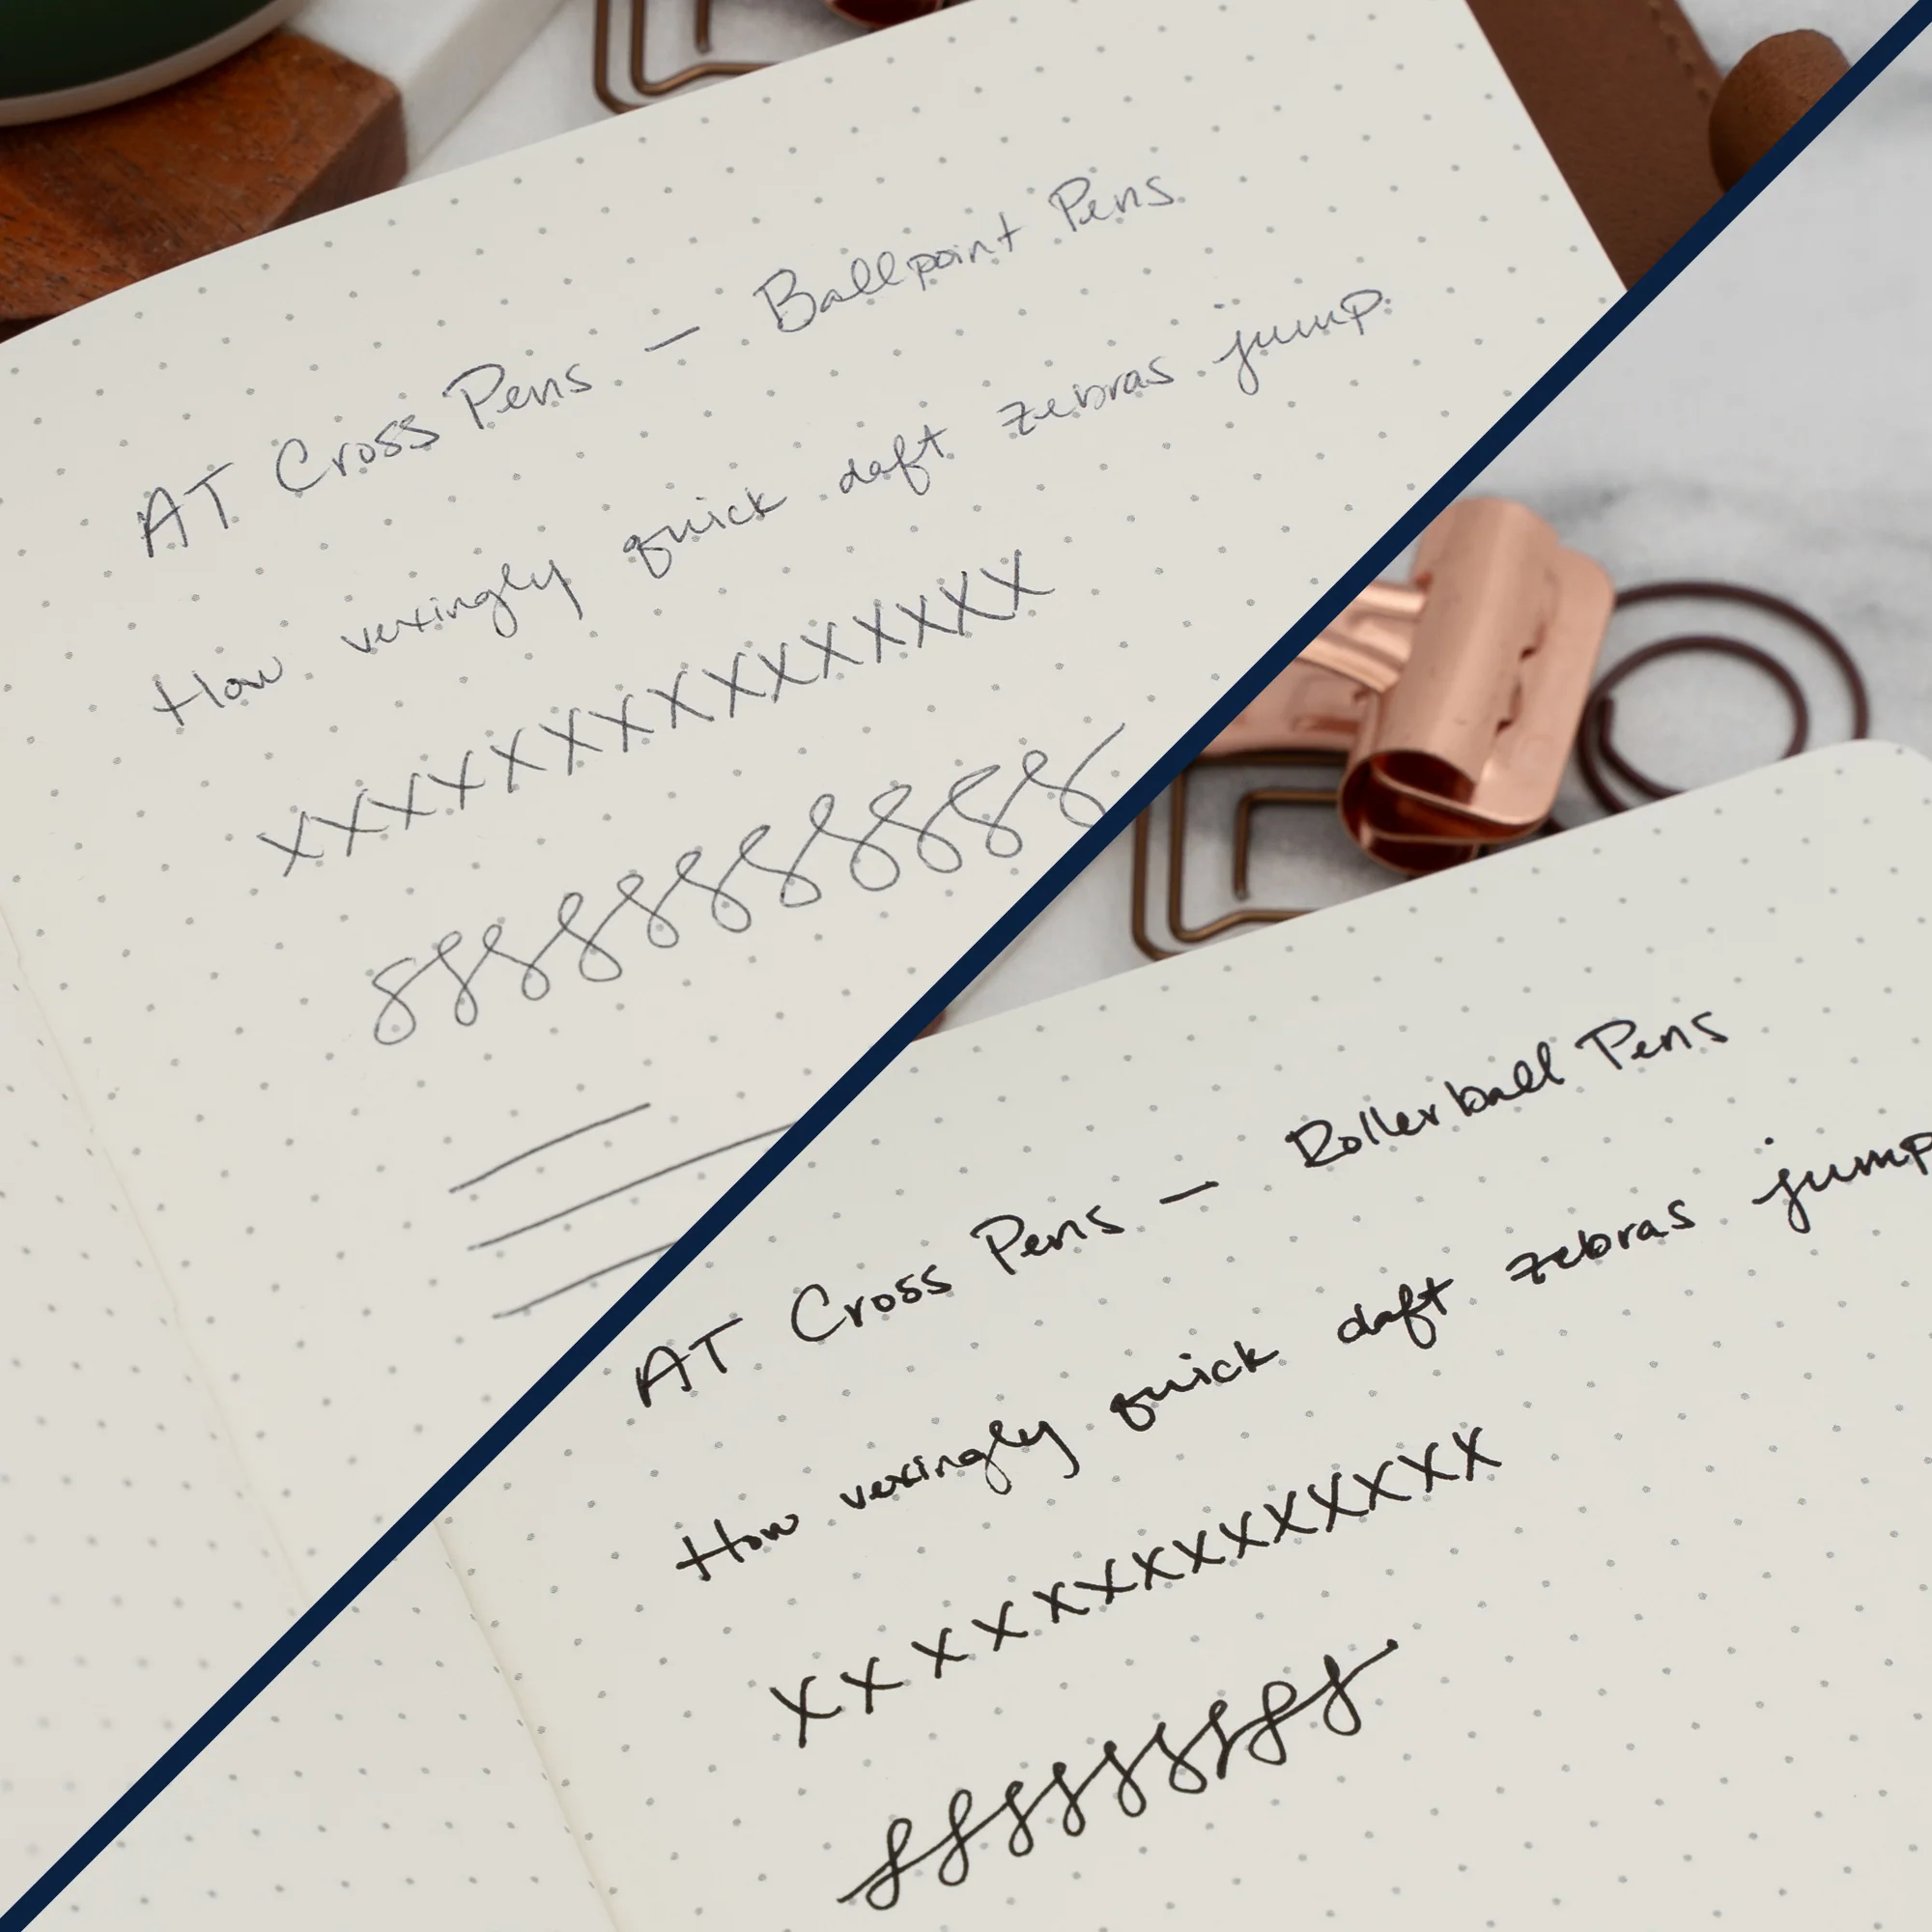 AT Cross Pens — Ballpoint Pens
How vexingly quick daft zebras jump.
XXXXXXXXXXXXXXX
AT Cross Pens — Rollerball Pens
How vexingly quick daft zebras jump
XXXXXXXXXXXXXX